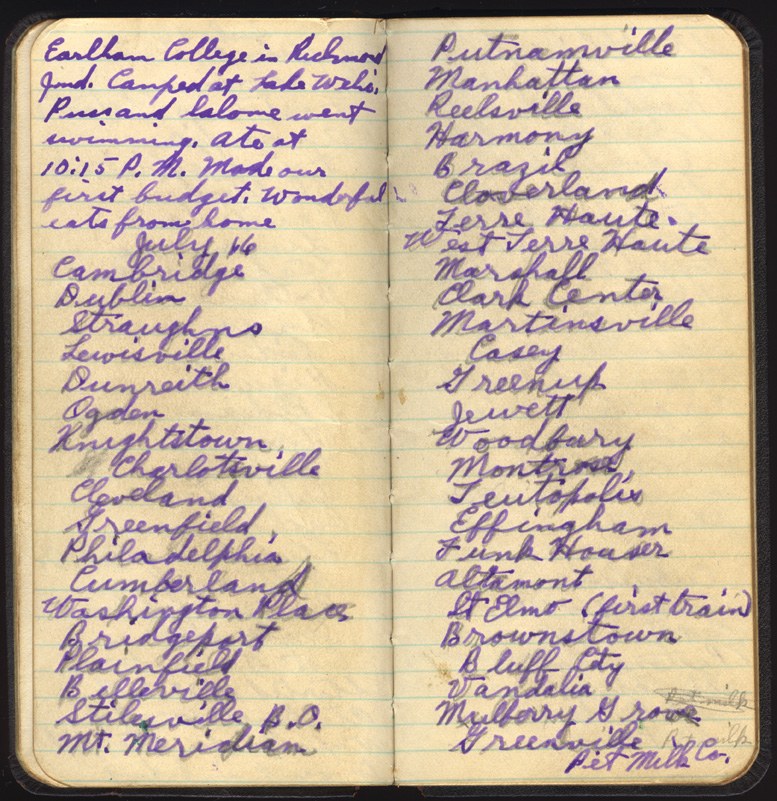 Earlham College in Richmond
Ind. Camped at Lake Wehi.
Puss and Salome went
swimming. Ate at
10:15 P.M. Made our
first budget. Wonderful
eats from home
July 16
Cambridge
Dublin
Straughns
Lewisville
Dunreith
Ogden
Knightstown
Charlotsville
Cleveland
Greenfield
Philadelphia
Cumberland
Washington Place
Bridgeport
Plainfield
Belleville
Stilesville B.O.
Mt. Meridian
Putnamville
Manhattan
Reelsville
Harmony
Brazil
Cloverland
Terre Haute.
West Terre Haute
Marshall
Clark Center
Martinsville
Casey
Greenup
Jewett
Woodbury
Montrose
Teutopolis
Effingham
Funk Houser
Altamont
St Elmo (first train)
Brownstown
Bluff City
Vandalia
Pet milk
Mulberry Grove
Greenville Pet milk
Pet Milk Co.